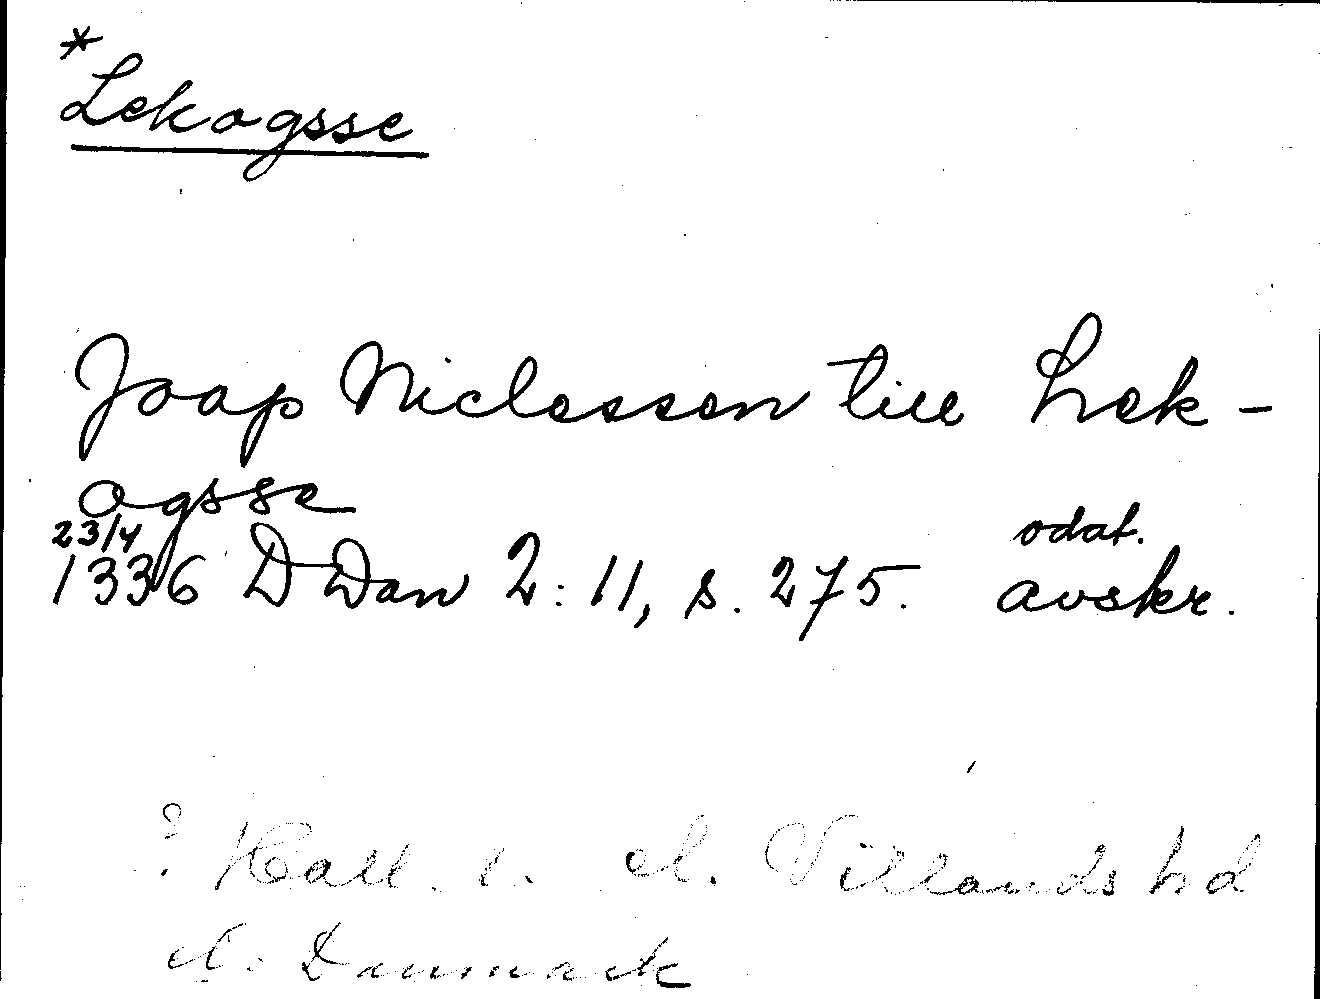 *
Lekagsse
Jaap Niclessen till Lek-
agsse
23/4 odat.
1336 DDan 2:11, s. 275. avskr.
? Hall. l. el. Villands hd
el. Danmark